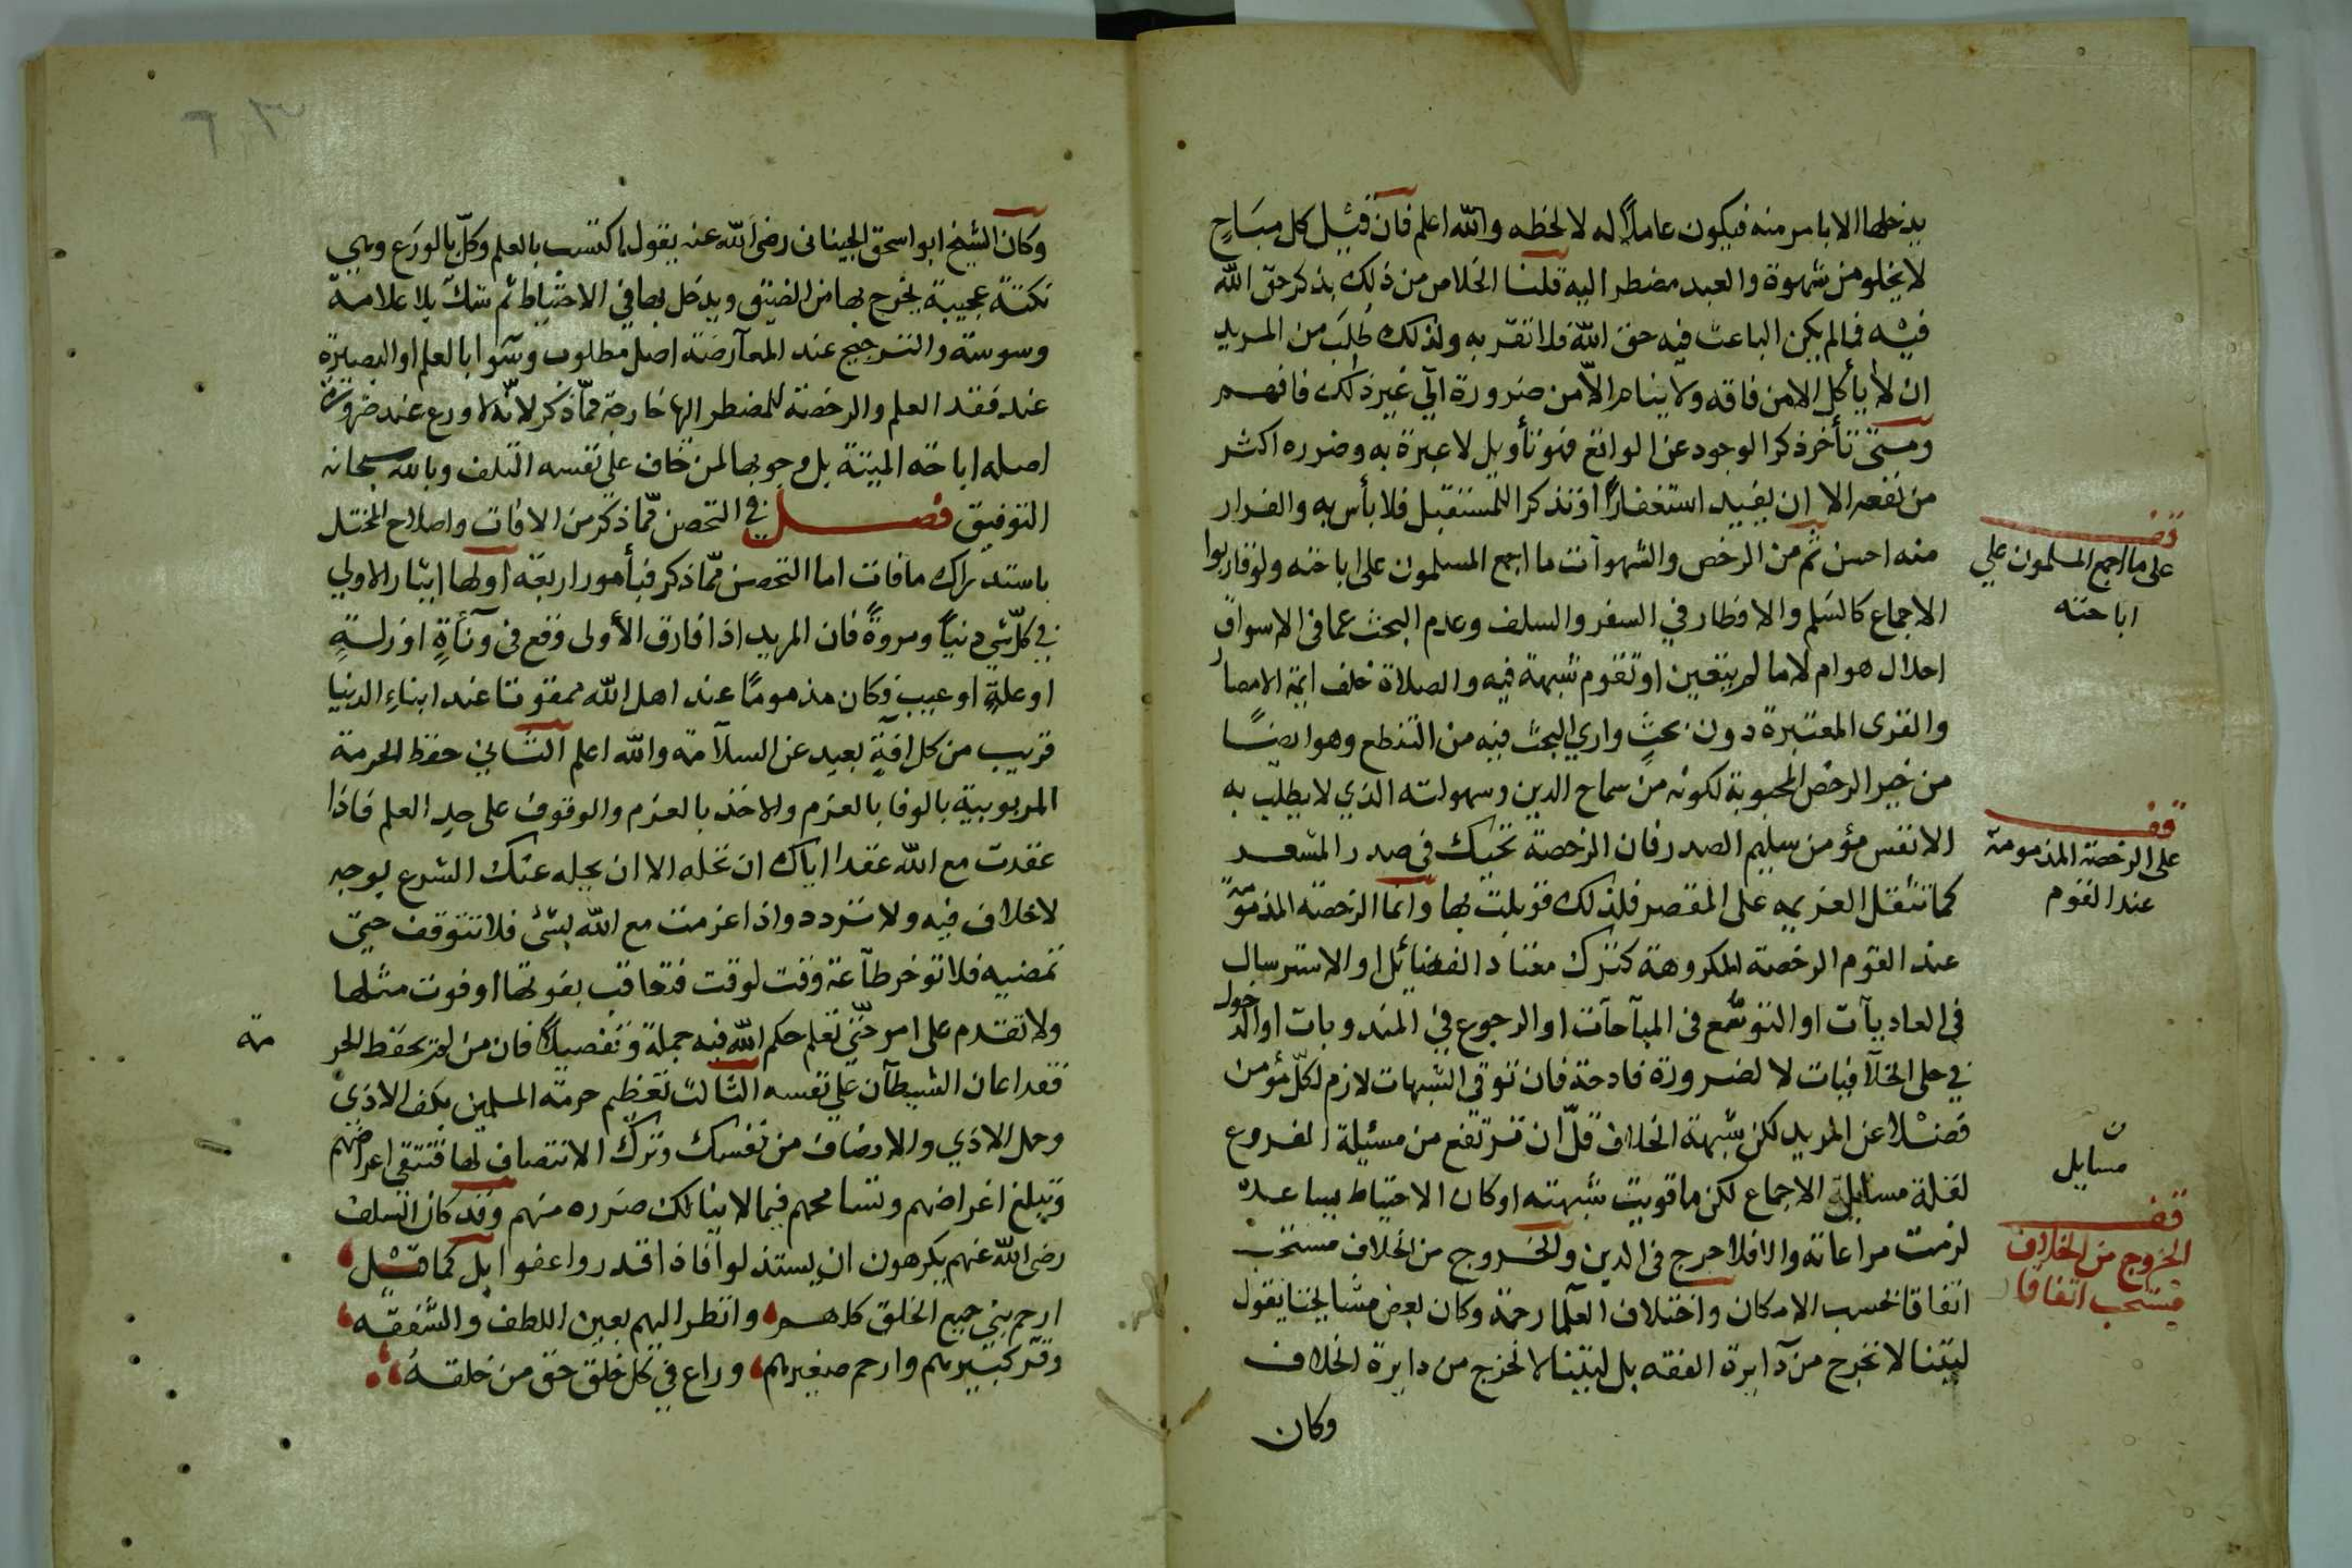 يدخلها الا بامر منه فيكون عاملا له لا لحظه والله اعلم فان قيل كل مباح
لا يخلو من شهوة والعبد مضطر اليه قلنا الخلاص من ذلك بذكر حق الله
فيه فما لم يكن الباعث فيه حق الله فلا تقربه ولذلك طلب من المريد
ان لا يأكل الا من فاقه ولا ينام الا من ضرورة الي غير ذلك فافهم
ومتى تأخر ذكر الوجود عن الواقع فهو تأويل لا عبرة به وضرره اكثر
من نفعه الا ان يفيد استغفارا او تذكرا للمستقبل فلا بأس به والفرار
منه احسن ثم من الرخص والشهوات ما اجمع المسلمون على اباحته ولو قاربوا
الاجماع كالسلم والافطار في السفر والسلف وعدم البحث عما فى الاسواق
احلال هو ام لا ما لم يتعين او تقوم شبهة فيه والصلاة خلف ايمة الامصار
والقرى المعتبرة دون بحث واري البحث فيه من التنطع وهو ايضا
من خير الرخص المحبوبة لكونه من سماح الدين وسهولته الذي لا يطلب به
الا نفس مؤمن سليم الصدر فان الرخصة تحيك فى صدر المشعر
كما تثقل العزيمه على المقصر فلذلك قوبلت بها وانما الرخصة المذمومة
عند القوم الرخصة المكروهة كترك معتاد الفضائل او الاسترسال
فى العاديات او التوسع فى المباحات او الرجوع في المندوبات او الدخول
في حلى الخلافيات لا لضرورة فادحة فان توقى الشبهات لازم لكل مؤمن
فضلا عن المريد لكن شبهة الخلاف قل ان ترتفع من مسئلة الفروع
لقلة مسايل الاجماع لكن ما قويت شبهته او كان الاحتياط يساعده
لزمت مراعاته والا فلا حرج فى الدين والخروج من الخلاف مستحب
اتفاقا بحسب الامكان واختلاف العلما رحمة وكان بعض مشايخنا يقول
ليتنا لا نخرج من دايرة الفقه بل ليتنا لا نخرج من دايرة الخلاف
وكان
قف
على ما اجمع المسلمون علي
اباحته
قف
على الرخصة المذمومة
عند القوم
ن
مسايل
قف
الخروج من الخلاف
مستحب اتفاقا
وكان الشيخ ابو اسحق الجبنيانى رضى الله عنه يقول اكتسب بالعلم وكل بالورع وهي
نكتة عجيبة يخرج بها من الضيق ويدخل بها في الاحتياط ثم شك بلا علامة
وسوسة والترجيح عند المعارضة اصل مطلوب وسوا بالعلم او البصيرة
عند فقد العلم والرخصة للمضطر اليها خارجة مما ذكر لانه لا ورع عند ضرورة
اصله اباحة الميتة بل وجوبها لمن خاف على نفسه التلف وبالله سبحانه
التوفيق فصل في التحصن مما ذكر من الافات واصلاح المختل
باستدراك ما فات اما التحصن مما ذكر فبأمور اربعة اولها ايثار الاولي
في كل شي دنيا ومروة فان المريد اذا فارق الأولى وقع فى دناءة او زلة
او علة او عيب وكان مذموما عند اهل الله ممقوتا عند ابناء الدنيا
قريب من كل افة بعيد عن السلامة والله اعلم الثاني حفظ الحرمة
المربوبية بالوفا بالعزم والاخذ بالعزم والوقوف على حد العلم فاذا
عقدت مع الله عقدا اياك ان تحله الا ان يحله عنك الشرع بوجه
لا خلاف فيه ولا تردد واذا عزمت مع الله بشئ فلا تتوقف حتى
تمضيه فلا توخر طاعة وقت لوقت فتعاقب بفوتها او فوت مثلها
ولا تقدم على امر حتي تعلم حكم الله فيه جملة وتفصيلا فان من لم يحفظ الحر
مة
فقد اعان الشيطان علي نفسه الثالث تعظيم حرمة المسلمين بكف الاذي
وحمل الاذي والانصاف من نفسك وترك الانتصاف لها فتتقي اعراضهم
وتبلغ اغراضهم وتسامحهم فيما لا ينالك ضرره منهم وقد كان السلف
رضى الله عنهم يكرهون ان يستذلوا فاذا قدروا عفوا بل كما قيل
ارحم بني جميع الخلق كلهم وانظر اليهم بعين اللطف والشفقه
وقر كبيرهم وارحم صغيرهم وراع في كل خلق حق من خلقه